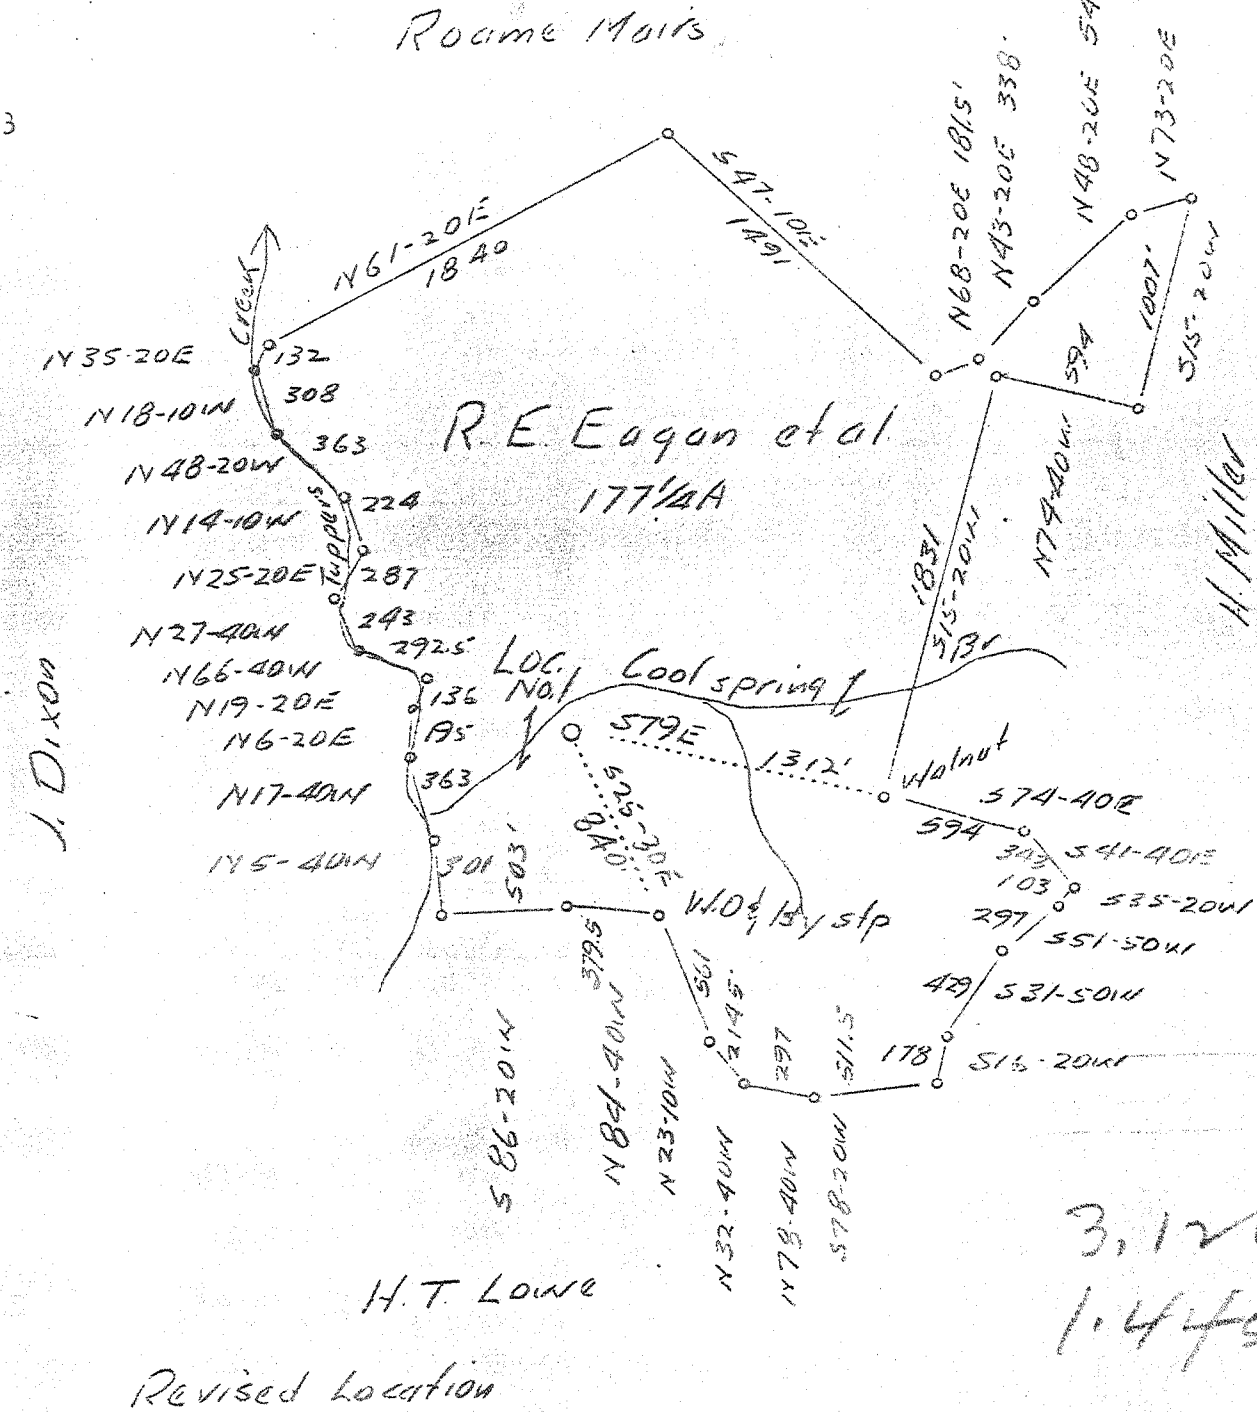 Roame Mairs
3
N61-20E
1840
S47-10E
1491
N68-20E 181.5'
N43-20E 338'
N48-20E 54
N73-20E
1007'
S15-20W
594
N74-40W
H. Miller
Creek
Tuppers
N35-20E 132
N18-10W 308
N48-20W 363
N14-10W 224
N25-20E 287
N27-40W 243
N66-40W 292.5
N19-20E 136
N6-20E 195
N17-40W 363
N5-40W 301
J. Dixon
R. E. Eagan et al
177 1/4 A
1831
S15-20W
Loc.
No.1
Cool spring Br
S79E
1312'
Walnut
S29-30E
840'
S74-40E
594
343 S41-40E
103 S35-20W
297 S51-50W
429 S31-50W
178 S16-20W
503'
S86-20W
379.5
N84-40W
W.O & Hy stp
561
N23-10W
214.5'
N32-40W
297
N78-40W
511.5
S78-20W
H. T. Lowe
3.12
1.44
Revised Location